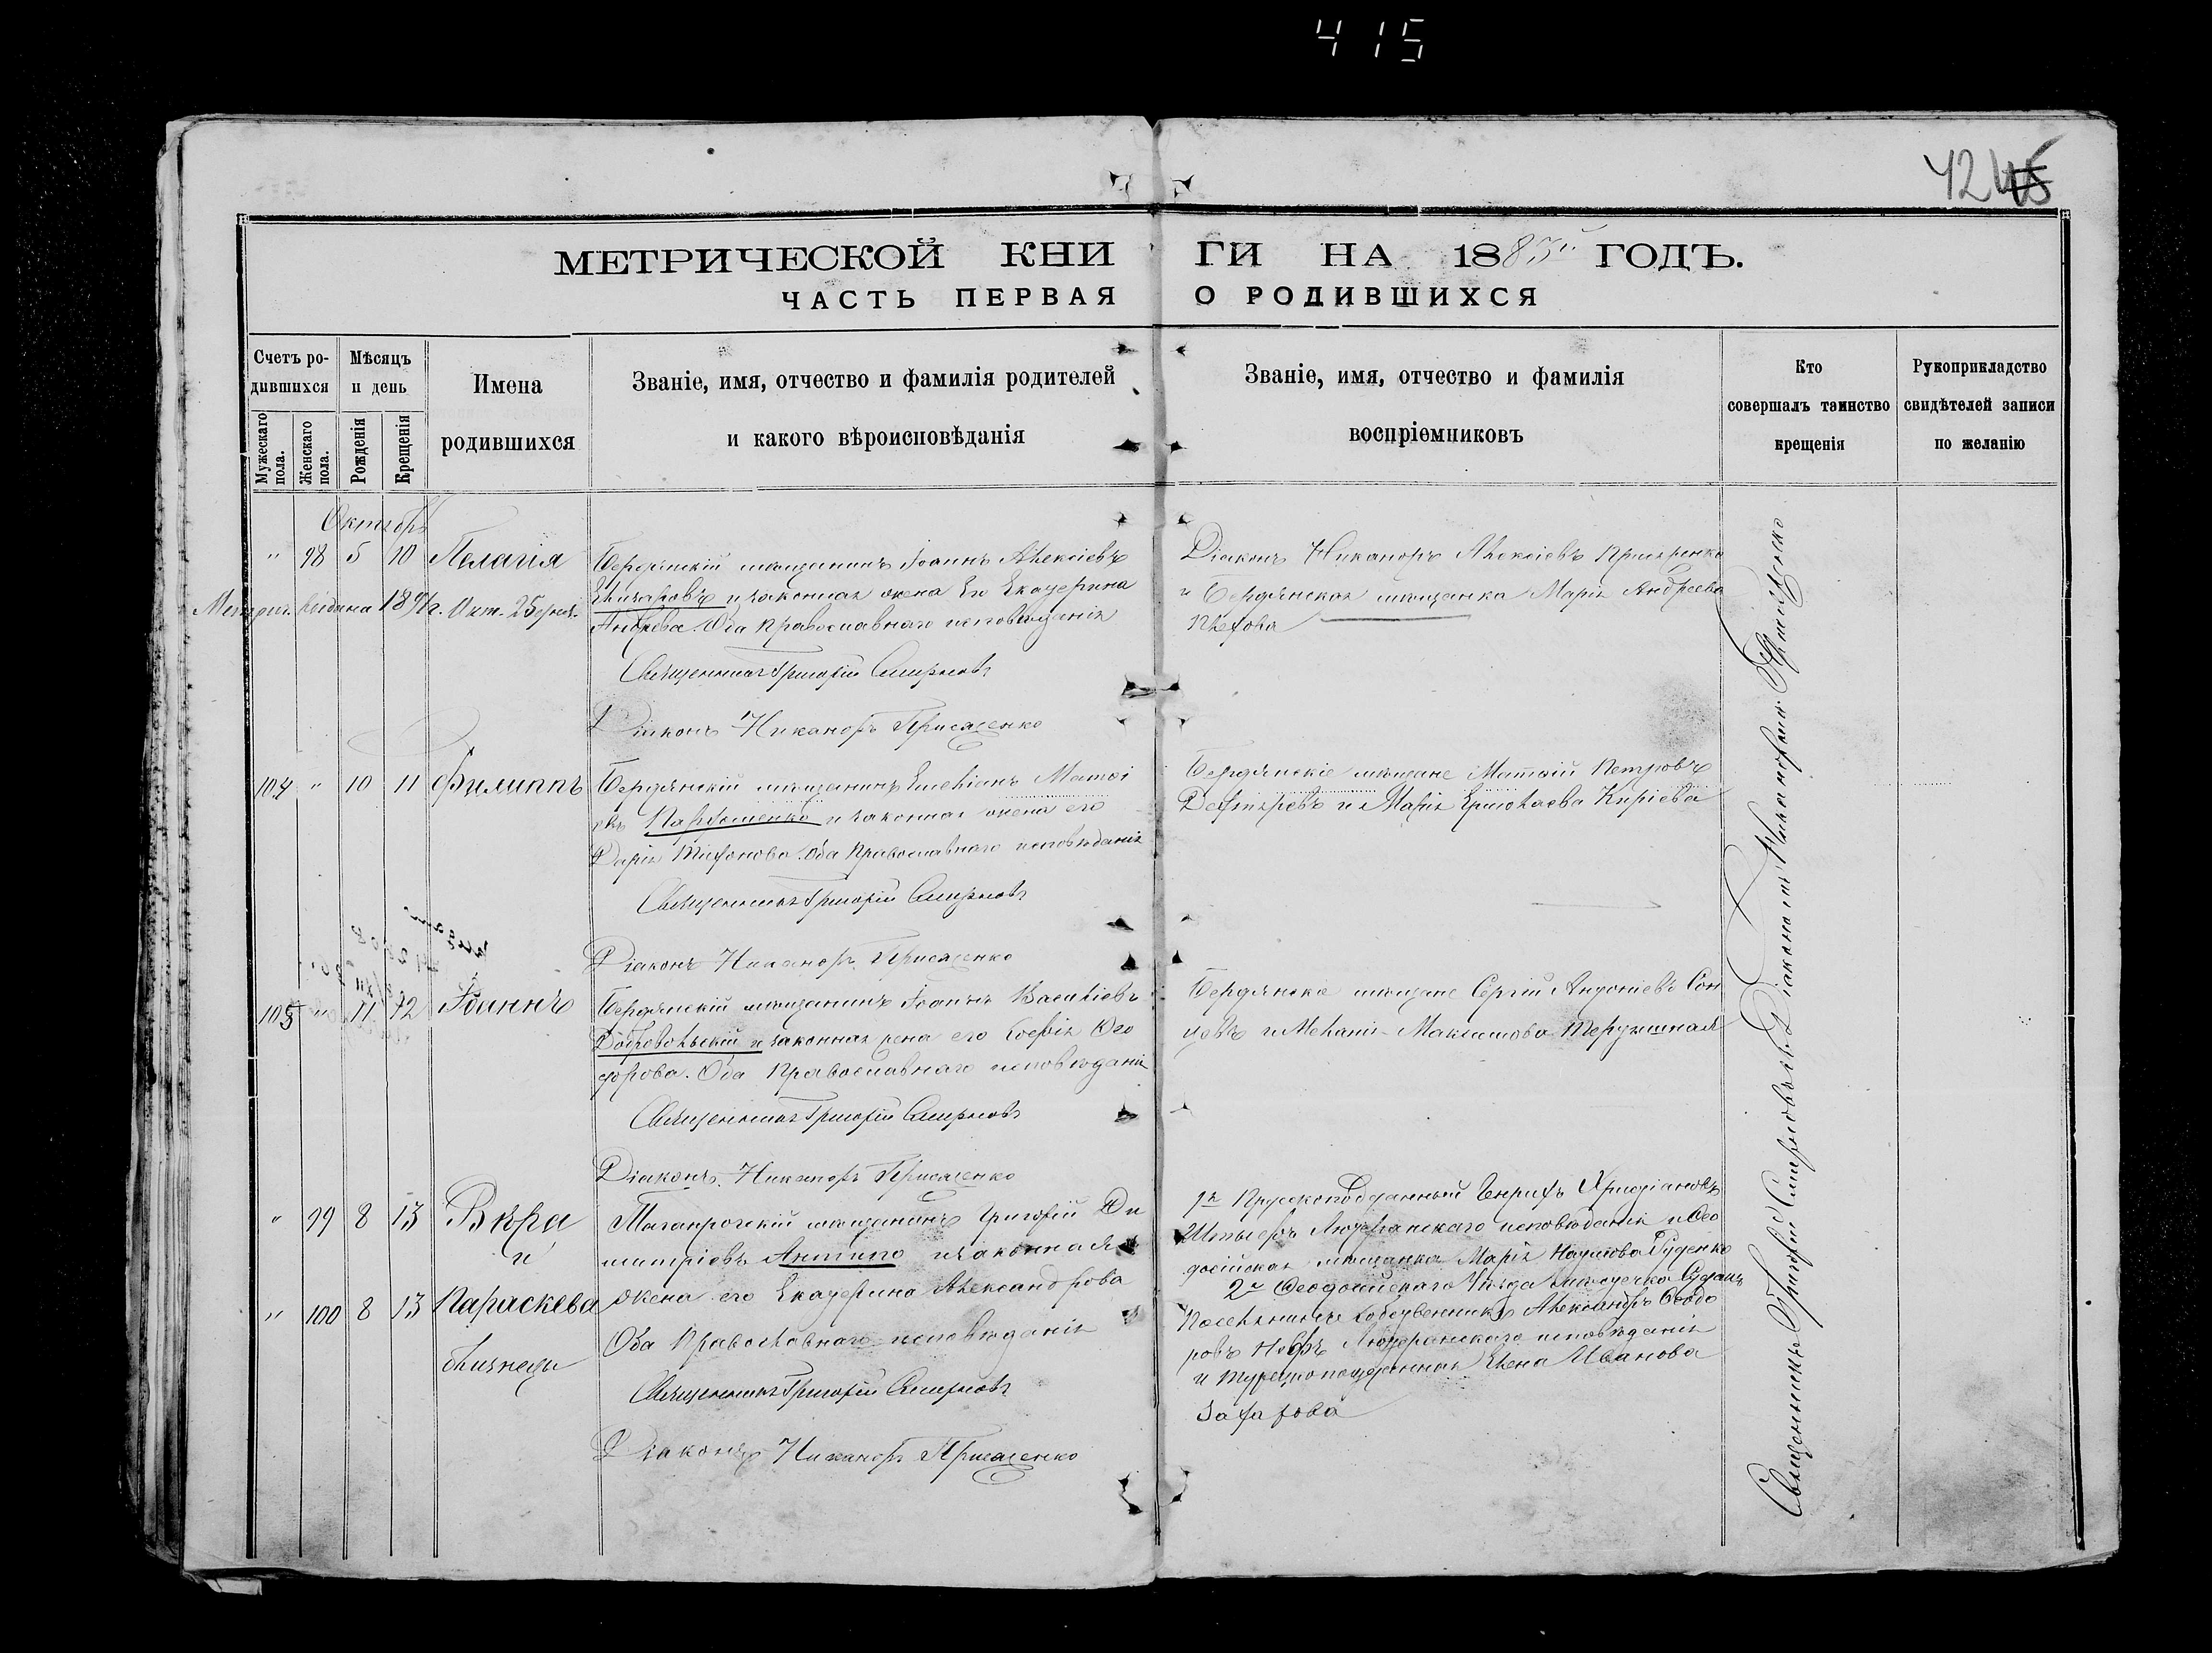 415
424
МЕТРИЧЕСКОЙ КНИГИ НА 1885й ГОДЪ.
ЧАСТЬ ПЕРВАЯ О РОДИВШИХСЯ
Счетъ родившихся
Мужескаго пола.
Женскаго пола.
Мѣсяцъ и день
Рожденія
Крещенія
Имена родившихся
Званіе, имя, отчество и фамилія родителей
и какого вѣроисповѣданія
Званіе, имя, отчество и фамилія
воспріемниковъ
Кто
совершалъ таинство
крещенія
Рукоприкладство
свидѣтелей записи
по желанію
Октябрь
" 98 5 10 Пелагія
Метрич. выдана 1891г. Окт. 25
Бердянскій мѣщанинъ Іоаннъ Алексіевъ
и законная жена его Екатерина
Андреева. Оба Православнаго исповѣданія
Священникъ Григорій Смирновъ
Діаконъ Никаноръ Присяженко
Діаконъ Никаноръ Алексіевъ Присяженко
и Бердянская мѣщанка Марія Андреева
104 " 10 11 Филиппъ
Бердянскій мѣщанинъ Емеліанъ Матѳіевъ Парѳоменко и законная жена его
Дарія Тихонова. Оба Православнаго исповѣданія
Священникъ Григорій Смирновъ
Діаконъ Никаноръ Присяженко
Бердянскіе мѣщане Матѳій Петровъ
Дегтяревъ и Марія Ермолаева Киріева
105 " 11 12 Іоаннъ
Бердянскій мѣщанинъ Іоаннъ Василіевъ
Добровольскій и законная жена его Софія Ѳеодорова. Оба Православнаго исповѣданія
Священникъ Григорій Смирновъ
Діаконъ Никаноръ Присяженко
Бердянскіе мѣщане Сергій Антоніевъ
и Меланія Максимова
" 99 8 13 Вѣра
и
" 100 8 13 Параскева
близнецы
Таганрогскій мѣщанинъ Григорій Димитріевъ Антипо и законная
жена его Екатерина Александрова
Оба Православнаго исповѣданія
Священникъ Григорій Смирновъ
Діаконъ Никаноръ Присяженко
1й Прусскоподданный Генрихъ Христіановъ
Лютеранскаго исповѣданія и Ѳеодосійская мѣщанка Марія Наумова Руденко
2й Ѳеодосійскаго Уѣзда
Поселянинъ собственникъ Александръ Ѳеодоровъ Лютеранскаго исповѣданія
и Елена Иванова
Захарова
Священникъ Григорій Смирновъ съ Діакономъ Никаноромъ Присяженко